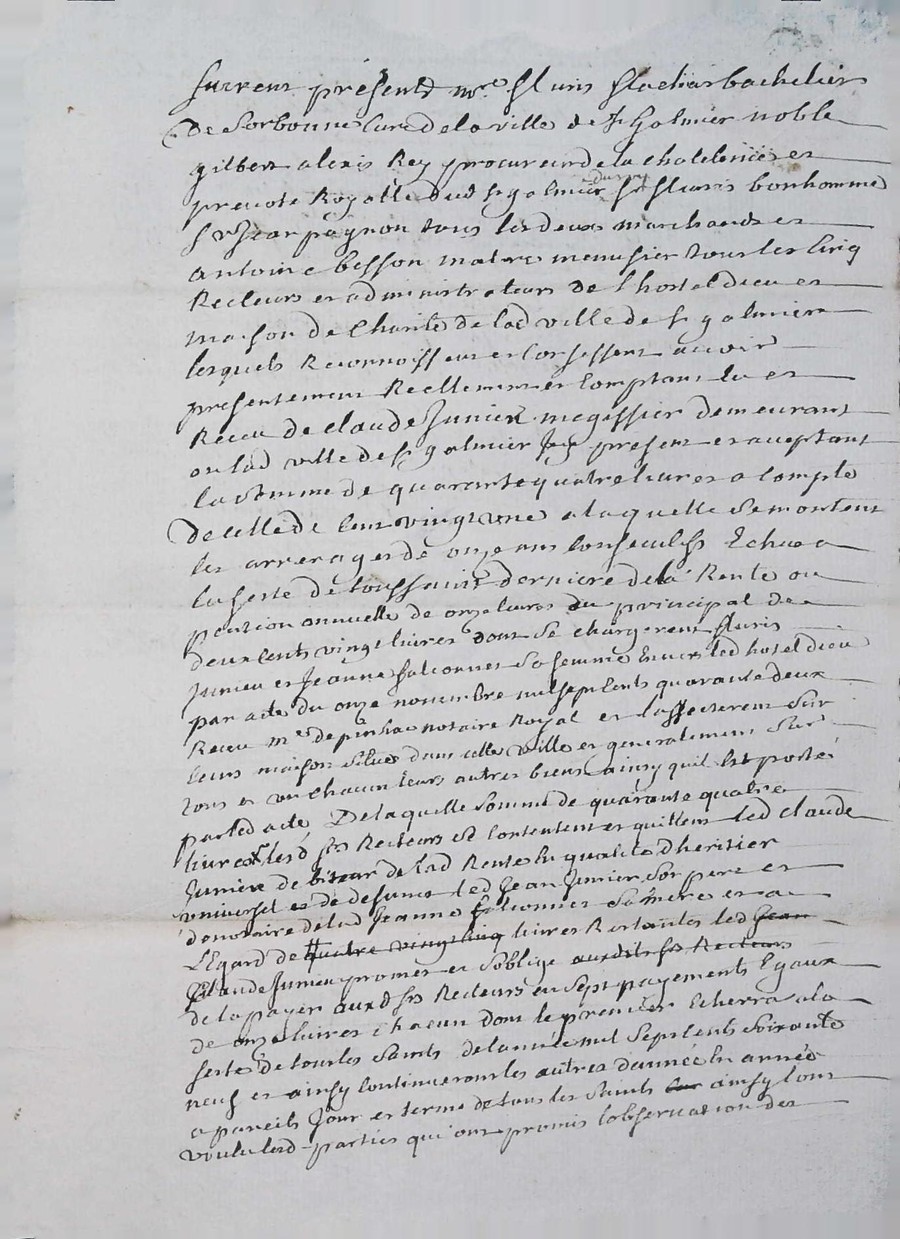 furent présents mre fluris flachat bachelier
de sorbonne curé de la ville de st galmier noble
gilbert alexis Rey procureur de la chatelenie et
prevoté Royalle dud st galmier sr fluris bonhomme
sr Jean pagnon tous les deux marchands et
antoine besson matre menusier tous les cinq
Recteurs et administrateurs de l hostel dieu et
maison de Charité de lad ville de st galmier
lesquels Reconnoissent et Confessent avoir
presentement Reellement et Comptant eu et
Receu de claude Junien megissier demeurant
en lad ville de st galmier present et aceptant
la somme de quarante quatre livres a compte
de celle de Cent vingt une a laquelle se montent
les arrerages de onze ans Consecutifs Echus a
la feste de toussaint derniere de la Rente ou
pention annuelle de onze livres du principal de
deux cents vingt livres dont se chargerent fluris
Junien et Jeanne falconnet sa femme Envers led hotel dieu
par acte du onze novembre mil sept Cents quarante deux
Receu Me notaire Royal et laffecterent sur
leurs maison située dans celle ville et generalement sur
tous et un chacun leurs autres biens ainsy quil Est porté
par led acte De laquelle somme de quarante quatre
livres lesd srs Recteurs se Contentent et quittent led claude
Junien de lad Rente En qualité d heritier
universel de defunt led Jean Junien son pere et
donataire de lad Jeanne falconnet sa mere et a
l Egard de quatre vingt cinq livres Restantes led Jean
Claude Junien promet et s oblige auxdits srs Recteurs
de la payer auxd srs Recteurs en sept payements Egaux
de onze livres chacun dont le premier Echerra a la
feste de tous les saints de l année mil sept Cents soixante
neuf et ainsy Continueront les autres d année En année
a pareils Jour et terme de tous les saints ainsy l ont
voulu lesd parties qui ont promis l observation des